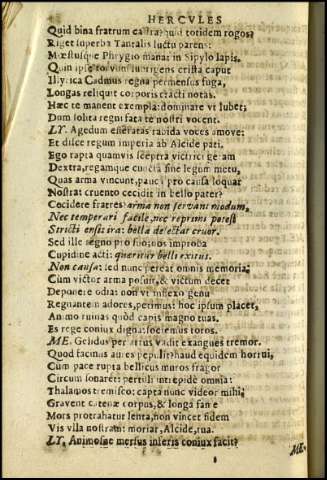 HERCVLES
Quid bina fratrum castra? quid totidem rogos?
Riget superba Tantalis luctu parens:
Mœstusque Phrygio manat in Sipylo lapis.
Quin ipse torvum subrigens crista caput
Illyrica Cadmus regna permensus fuga,
Longas reliquit corporis tracti notas.
Hæc te manent exempla: dominare vt lubet;
Dum solita regni fata te nostri vocent.
LY. Agedum efferatas rabida voces amove:
Et disce regum imperia ab Alcide pati.
Ego rapta quamvis sceptra victrici geram
Dextra, regamque cuncta sine legum metu,
Quas arma vincunt, pauca pro causa loquar
Nostra: cruento cecidit in bello pater?
Cecidere fratres? arma non servant modum,
Nec temperari facile, nec reprimi potest
Stricti ensis ira: bella delectat cruor.
Sed ille regno pro suo; nos improba
Cupidine acti: quæritur belli exitus.
Non causa: sed nunc pereat omnis memoria;
Cum victor arma posuit, & victum decet
Deponere odia: non vt inflexo genu
Regnantem adores, petimus: hoc ipsum placet,
Animo ruinas quòd capis magno tuas.
Es rege coniux digna: sociemus toros.
ME. Gelidus per artus vadit exangues tremor.
Quod facinus aures pepulit? haud equidem horrui,
Cum pace rupta bellicus muros fragor
Circum sonaret: pertuli intrepidè omnia:
Thalamos tremisco: capta nunc videor mihi;
Gravent catenæ corpus, & longa fame
Mors protrahatur lenta, non vincet fidem
Vis vlla nostram: moriar, Alcide, tua.
LY. Animosne mersus inferis coniux facit?
ME.